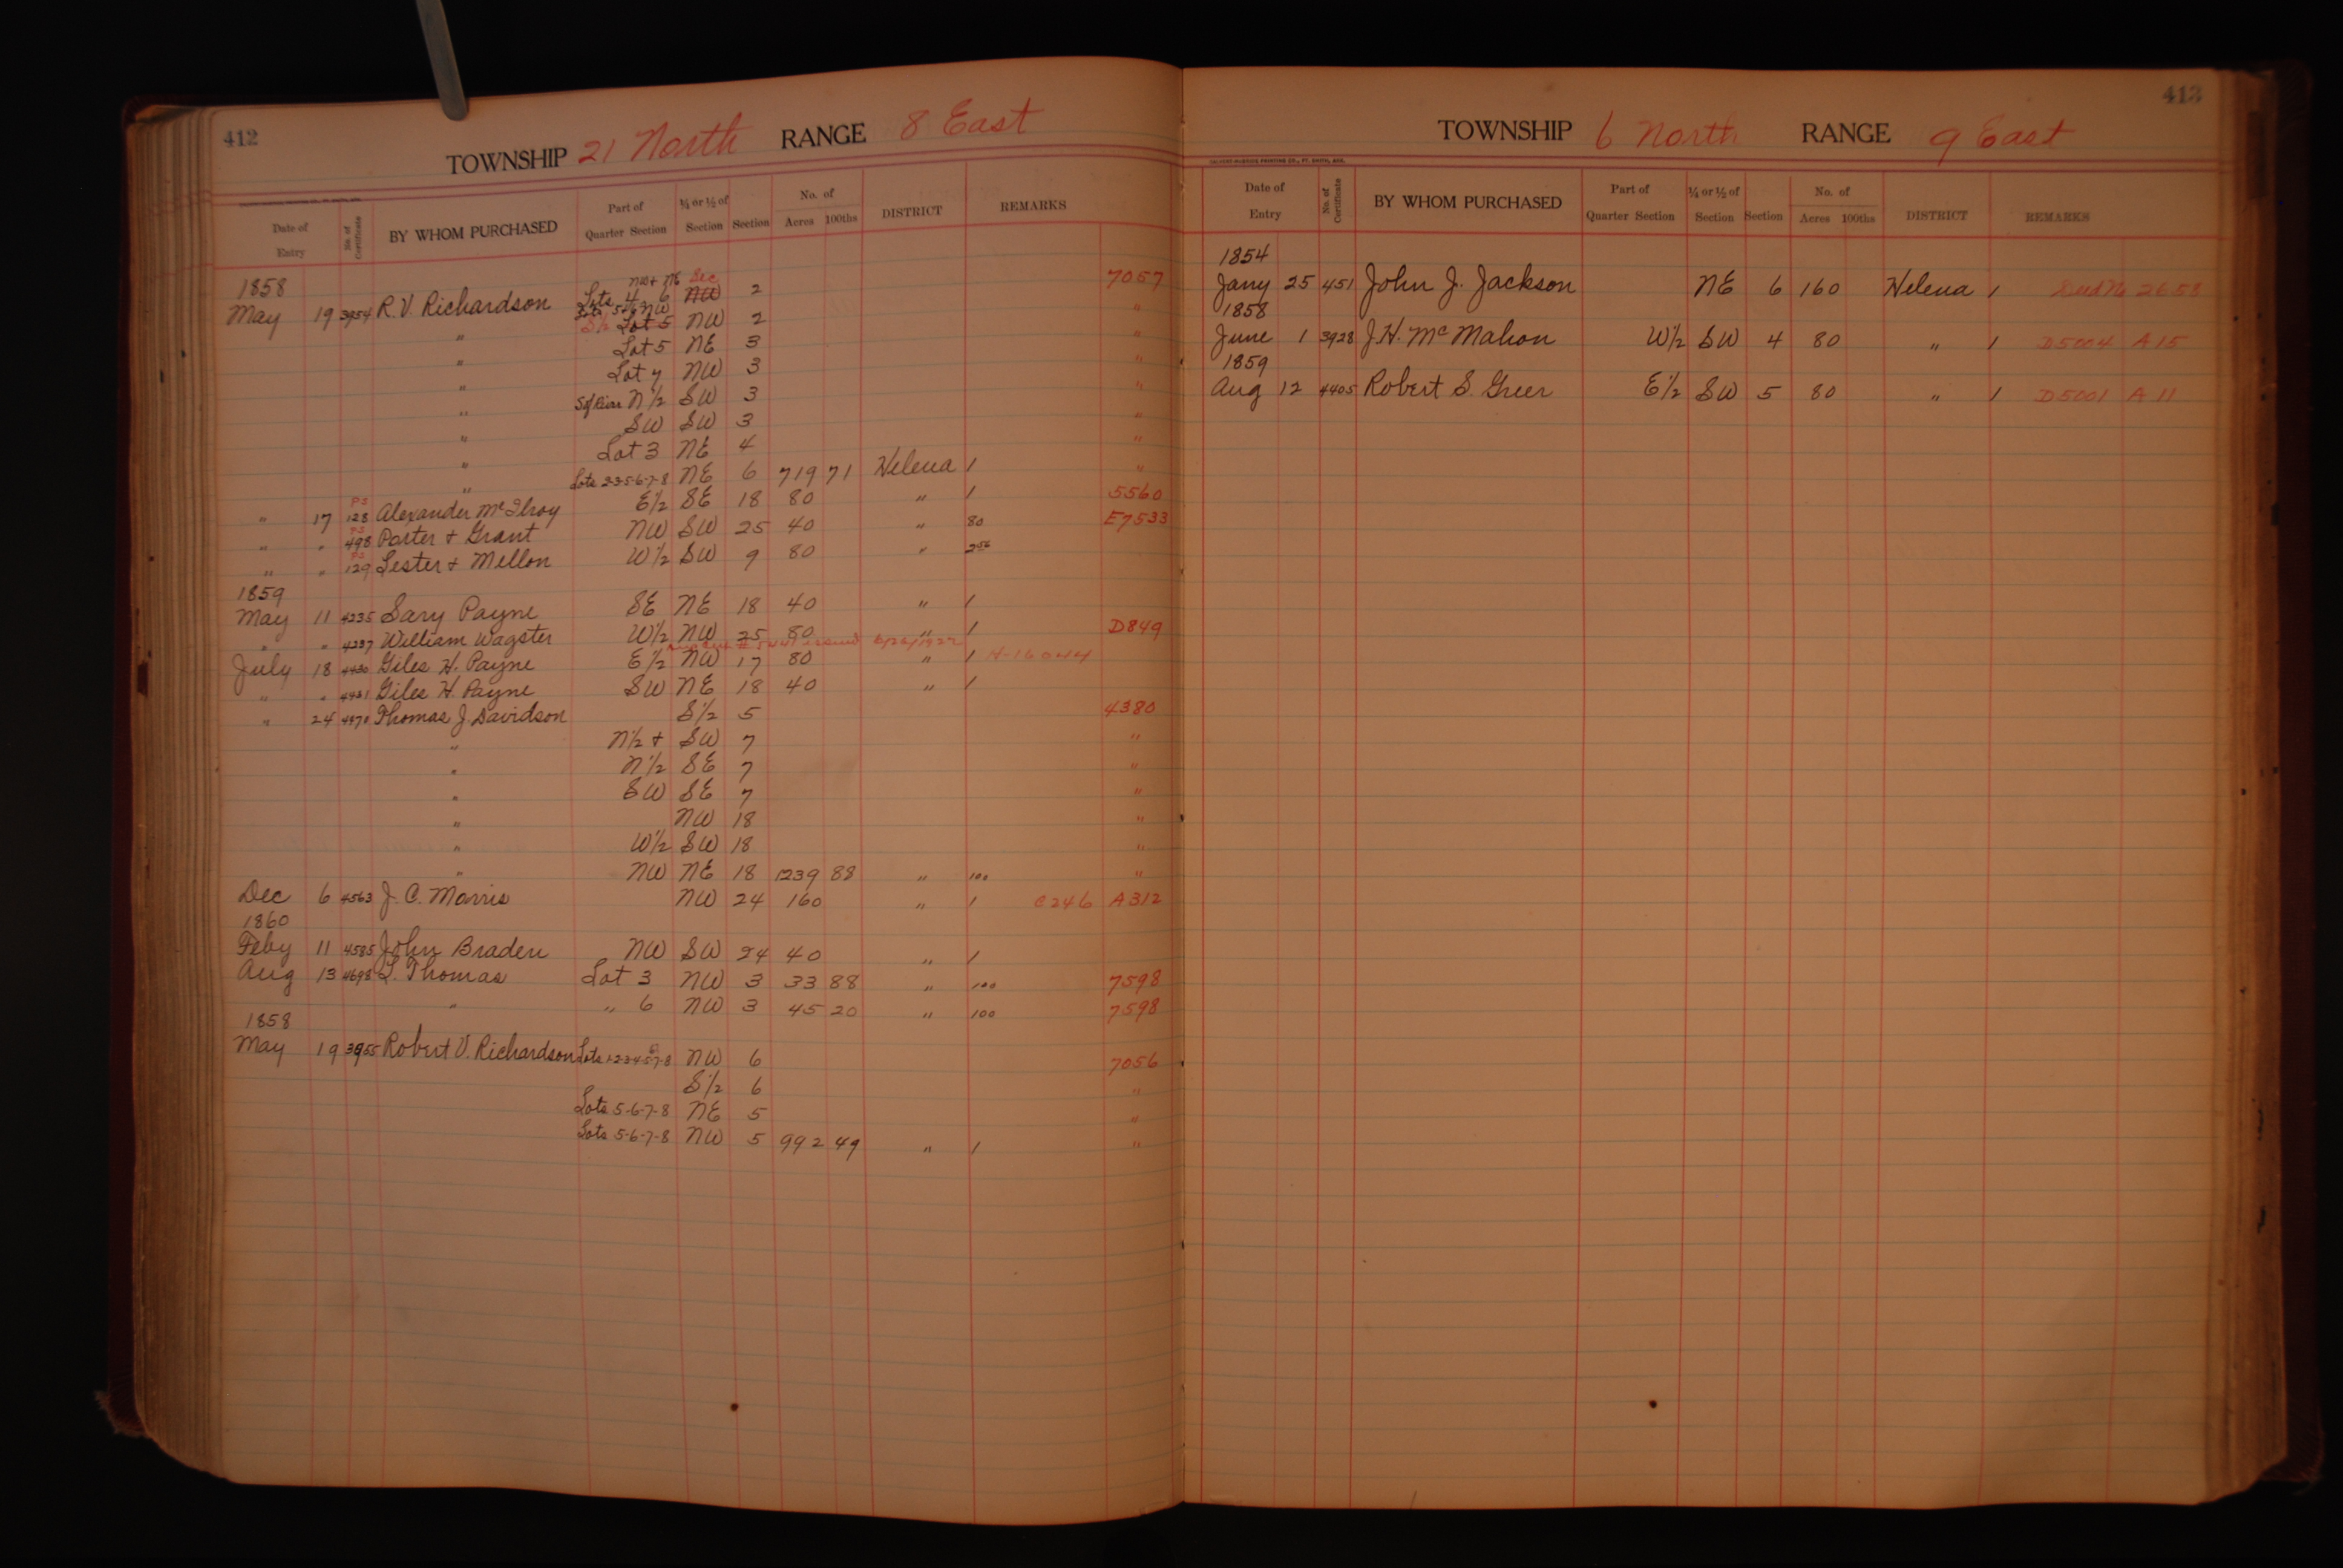 412
TOWNSHIP 21 North RANGE 8 East
Date of Entry No. of Certificate BY WHOM PURCHASED Part of Quarter Section ¼ or ½ of Section Section No. of Acres 100ths DISTRICT REMARKS
1858 NW + NE Sec
May 19 3954 R. V. Richardson Lots 4 6 NW 2 7057
" S½ Lot 5 NW 2 "
" Lot 5 NE 3 "
" Lot 7 NW 3 "
" S of River N½ SW 3 "
" SW SW 3 "
" Lot 3 NE 4 "
" Lots 2-3-5-6-7-8 NE 6 719 71 Helena 1 "
" 17 PS 128 Alexander McIlroy E½ SE 18 80 " 1 5560
" " PS 498 Porter + Grant NW SW 25 40 " 80 E7533
" " PS 129 Lester + Mellon W½ SW 9 80 "
1859
May 11 4235 Sary Payne SE NE 18 40 " 1
" " 4237 William Wagster W½ NW 25 80 " 1 D849
July 18 4430 Giles H. Payne E½ NW 17 80 " 1 H-16044
" " 4431 Giles H. Payne SW NE 18 40 " 1
" 24 4370 Thomas J. Davidson S½ 5 4380
" N½ + SW 7 "
" N½ SE 7 "
" SW SE 7 "
" NW 18 "
" W½ SW 18 "
" NW NE 18 1239 88 " 100 "
Dec 6 4563 J. C. Morris NW 24 160 " 1 C246 A312
1860
Feby 11 4585 John Braden NW SW 24 40 " 1
Aug 13 4698 L. Thomas Lot 3 NW 3 33 88 " 100 7598
" " 6 NW 3 45 20 " 100 7598
1858
May 19 3955 Robert V. Richardson Lots 1-2-3-4-5-6-7-8 NW 6 7056
S½ 6 "
Lots 5-6-7-8 NE 5 "
Lots 5-6-7-8 NW 5 992 49 " 1 "
413
TOWNSHIP 6 North RANGE 9 East
Date of Entry No. of Certificate BY WHOM PURCHASED Part of Quarter Section ¼ or ½ of Section Section No. of Acres 100ths DISTRICT REMARKS
1854
Jany 25 451 John J. Jackson NE 6 160 Helena 1 Deed No 2658
1858
June 1 3928 J. H. McMahon W½ SW 4 80 " 1 D5004 A15
1859
Aug 12 4405 Robert S. Greer E½ SW 5 80 " 1 D5001 A11